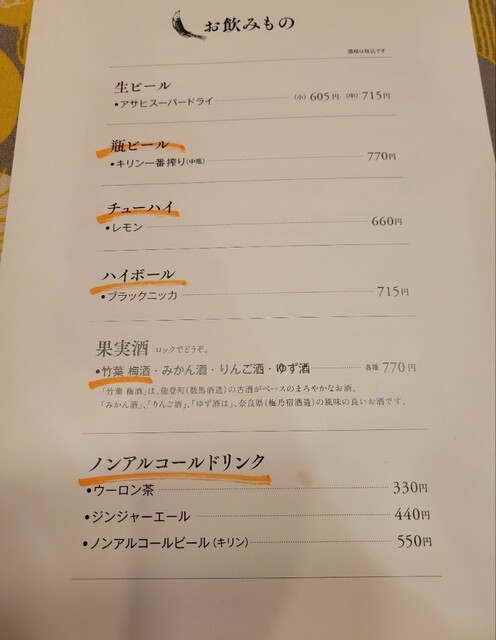 お飲みもの
価格は税込です
生ビール
•アサヒスーパードライ (小) 605円 (中) 715円
瓶ビール
•キリン一番搾り(中瓶) 770円
チューハイ
•レモン 660円
ハイボール
•ブラックニッカ 715円
果実酒 ロックでどうぞ。
•竹葉 梅酒・みかん酒・りんご酒・ゆず酒 各種 770円
「竹葉 梅酒」は、能登町(数馬酒造)の古酒がベースのまろやかなお酒。
「みかん酒」、「りんご酒」、「ゆず酒は」、奈良県(梅乃宿酒造)の風味の良いお酒です。
ノンアルコールドリンク
•ウーロン茶 330円
•ジンジャーエール 440円
•ノンアルコールビール(キリン) 550円